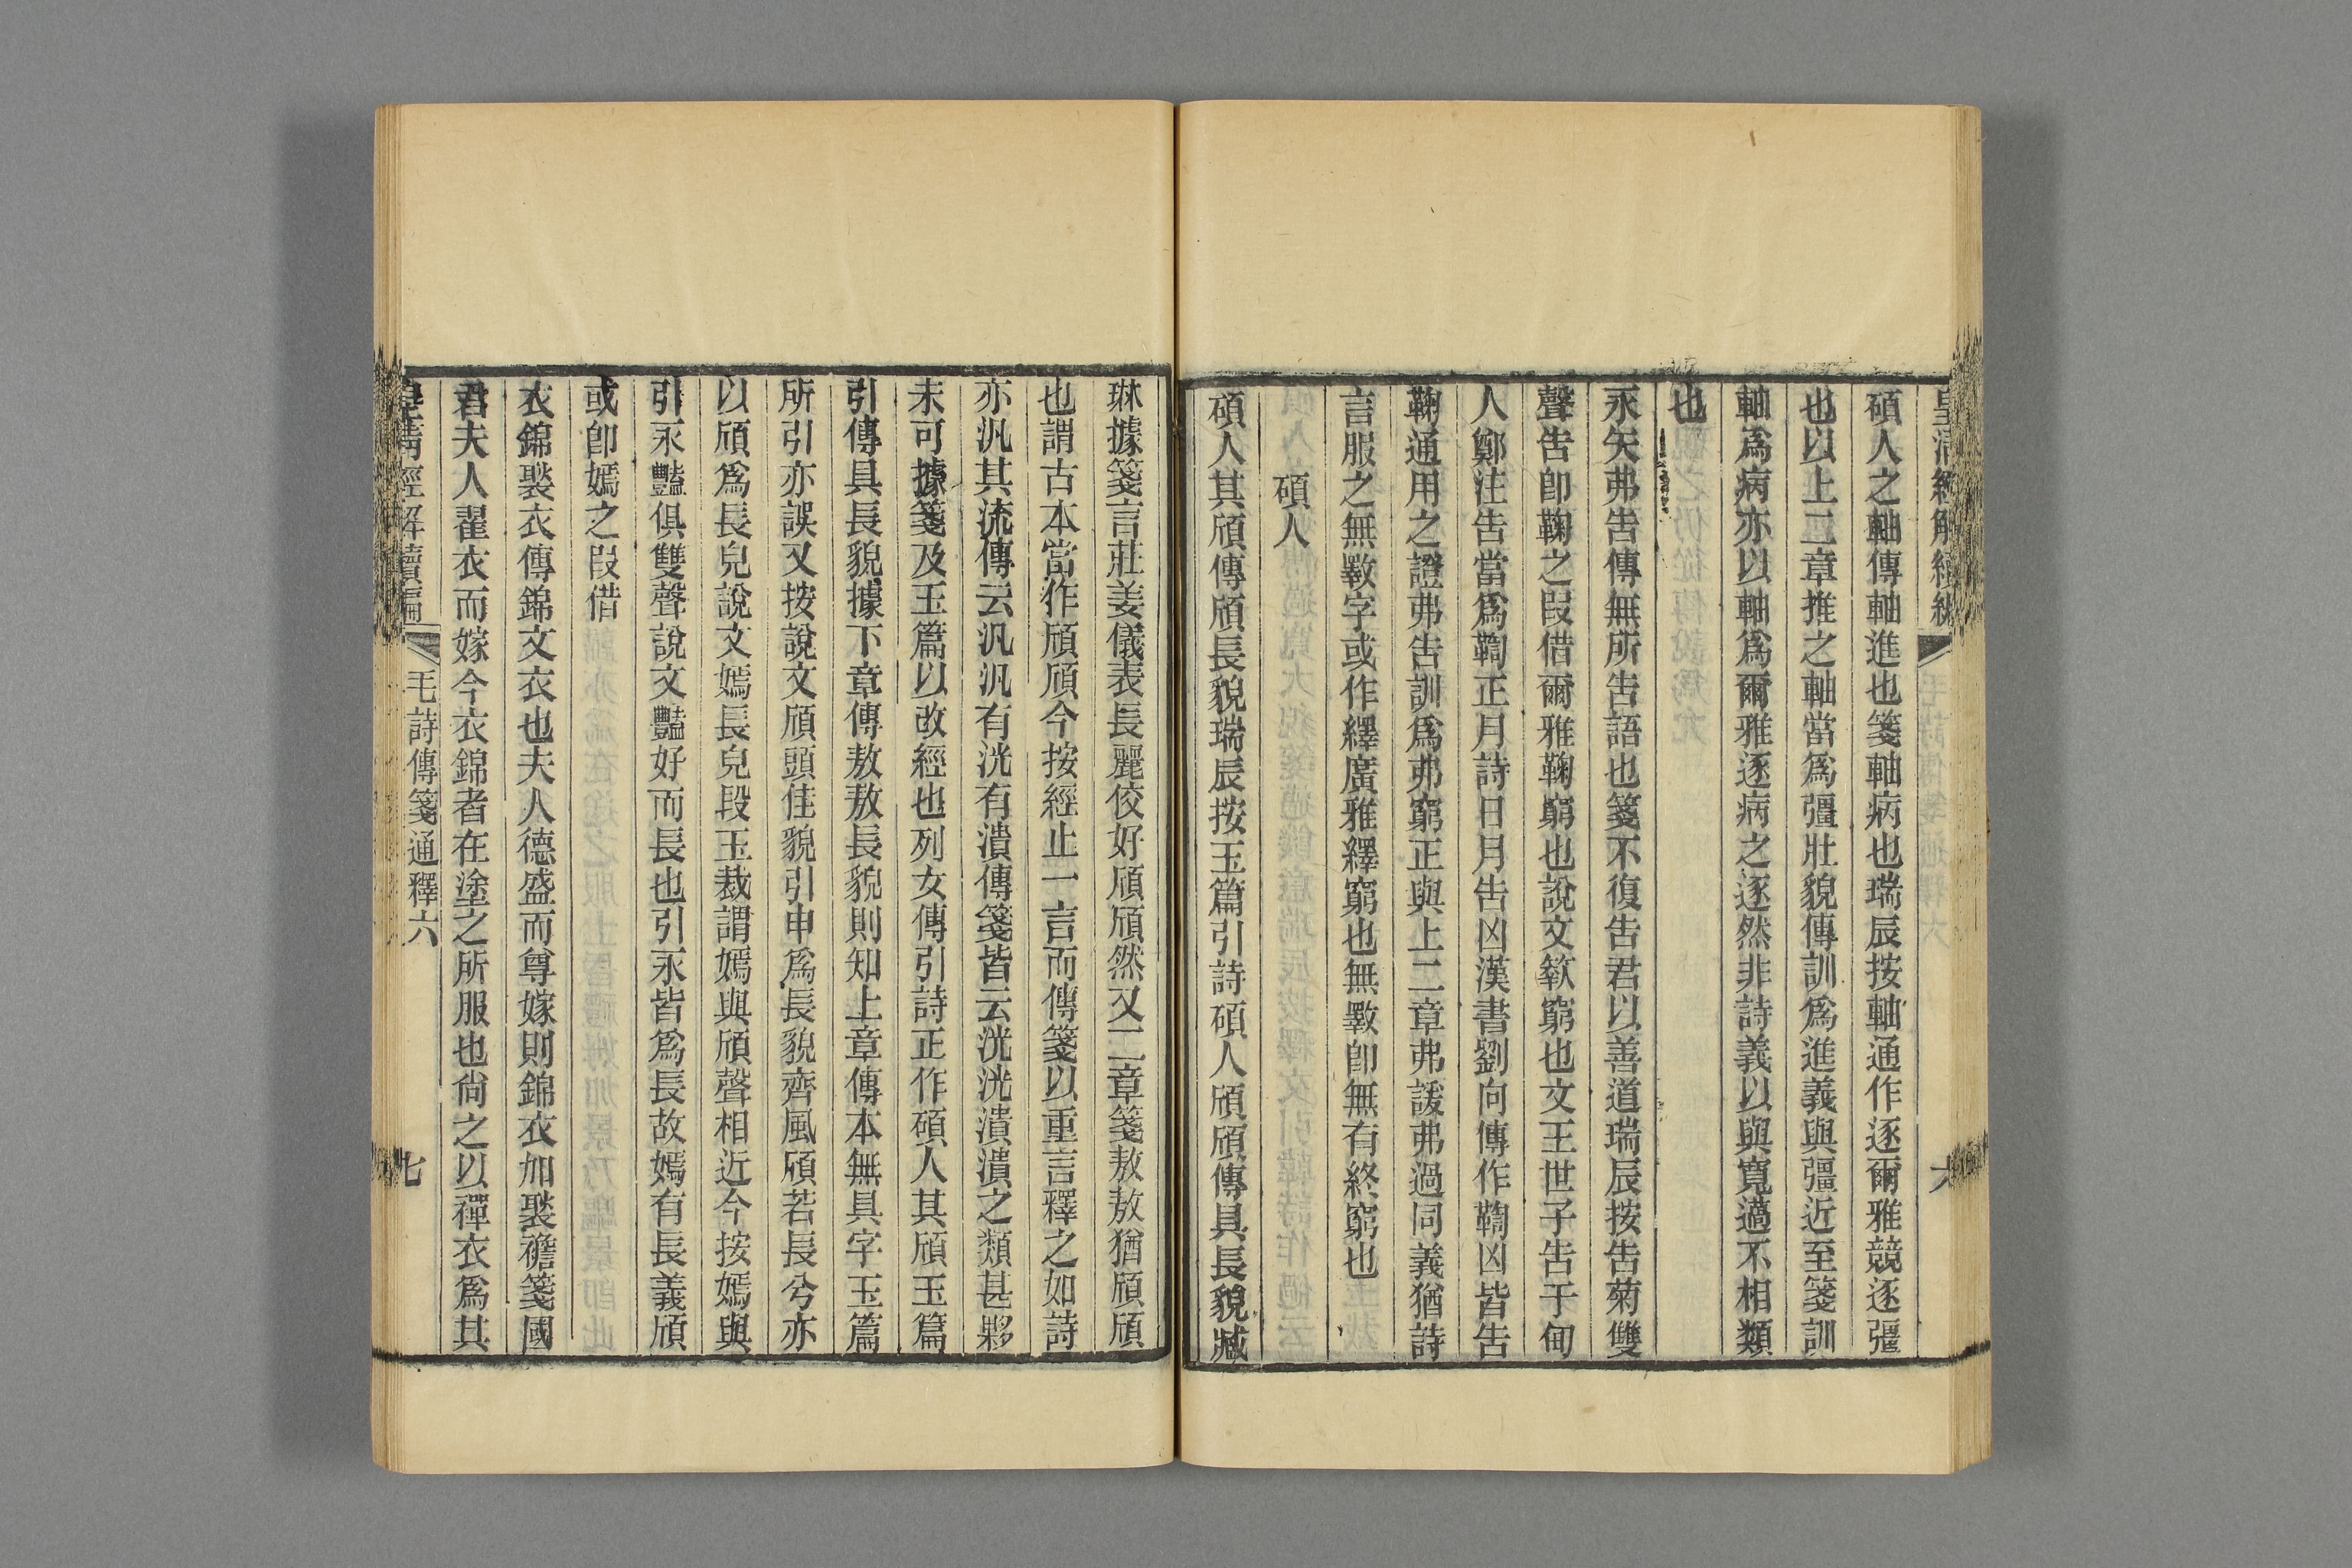 皇清經解續編 毛詩傳箋通釋六 六
碩人之軸傳軸進也箋軸病也瑞辰按軸通作逐爾雅競逐彊
也以上二章推之軸當爲彊壯貌傳訓爲進義與彊近至箋訓
軸爲病亦以軸爲爾雅逐病之逐然非詩義以與寬薖不相類
也
永矢弗告傳無所告語也箋不復告君以善道瑞辰按告菊雙
聲告卽鞠之叚借爾雅鞠窮也說文䉤窮也文王世子告于甸
人鄭注告當爲鞫正月詩日月告凶漢書劉向傳作鞫凶皆告
鞠通用之證弗告訓爲弗窮正與上二章弗諼弗過同義猶詩
言服之無斁字或作繹廣雅繹窮也無斁卽無有終窮也
碩人
碩人其頎傳頎長貌瑞辰按玉篇引詩碩人頎頎傳具長貌臧
琳據箋言莊姜儀表長麗佼好頎頎然又二章箋敖敖猶頎頎
也謂古本當作頎頎今按經止一言而傳箋以重言釋之如詩
亦汎其流傳云汎汎有洸有潰傳箋皆云洸洸潰潰之類甚夥
未可據箋及玉篇以改經也列女傳引詩正作碩人其頎玉篇
引傳具長貌據下章傳敖敖長貌則知上章傳本無具字玉篇
所引亦誤又按說文頎頭佳貌引申爲長貌齊風頎若長兮亦
以頎爲長皃說文嫣長皃段玉裁謂嫣與頎聲相近今按嫣與
引永豔俱雙聲說文豔好而長也引永皆爲長故嫣有長義頎
或卽嫣之叚借
衣錦褧衣傳錦文衣也夫人德盛而尊嫁則錦衣加褧襜箋國
君夫人翟衣而嫁今衣錦者在塗之所服也尙之以禪衣爲其
皇清經解續編 毛詩傳箋通釋六 七